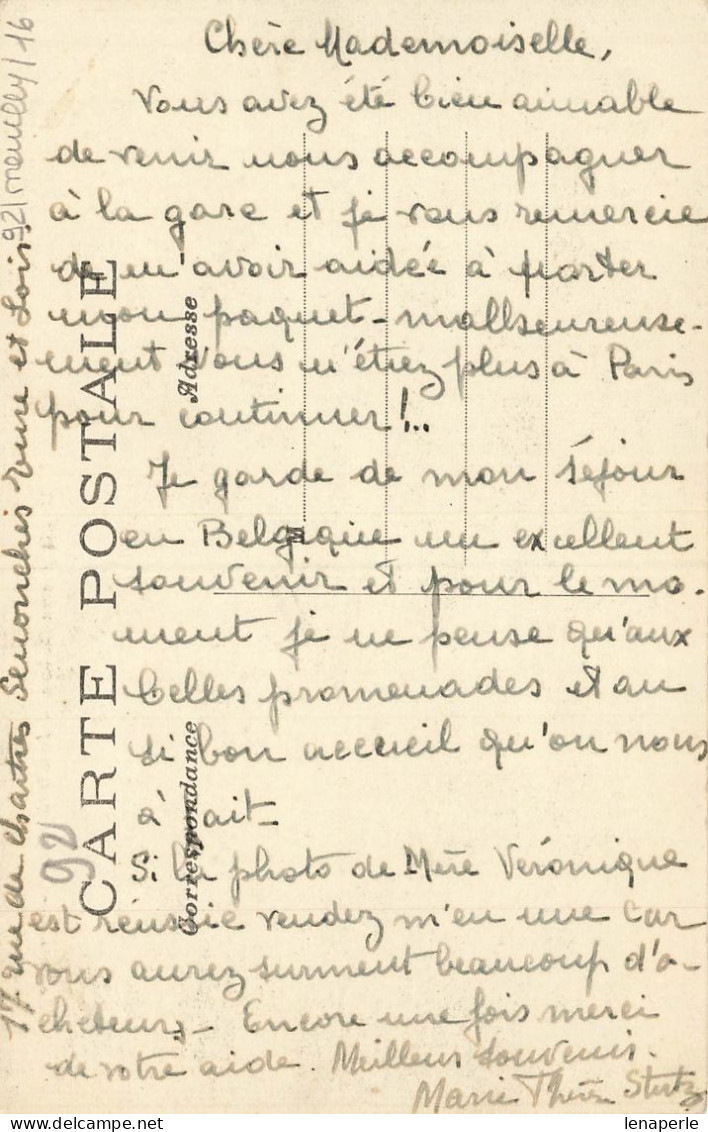 Chère Mademoiselle,
Vous avez été bien aimable
de venir nous accompagner
à la gare et je vous remercie
de m'avoir aidée à porter
mon paquet - malheureuse-
ment vous n'étiez plus à Paris
pour continuer !..
Je garde de mon séjour
en Belgique un excellent
souvenir et pour le mo-
ment je ne pense qu'aux
belles promenades et au
si bon accueil qu'on nous
a fait -
Si la photo de Mère Véronique
est réussie vendez m'en une car
vous aurez surment beaucoup d'a-
cheteurs - Encore une fois merci
de votre aide. Meilleurs souvenirs.
Marie Thérèse
17 rue de Chartres Senonches Eure et Loir
92/neuilly/16
92
CARTE POSTALE
Correspondance
Adresse
lenaperle